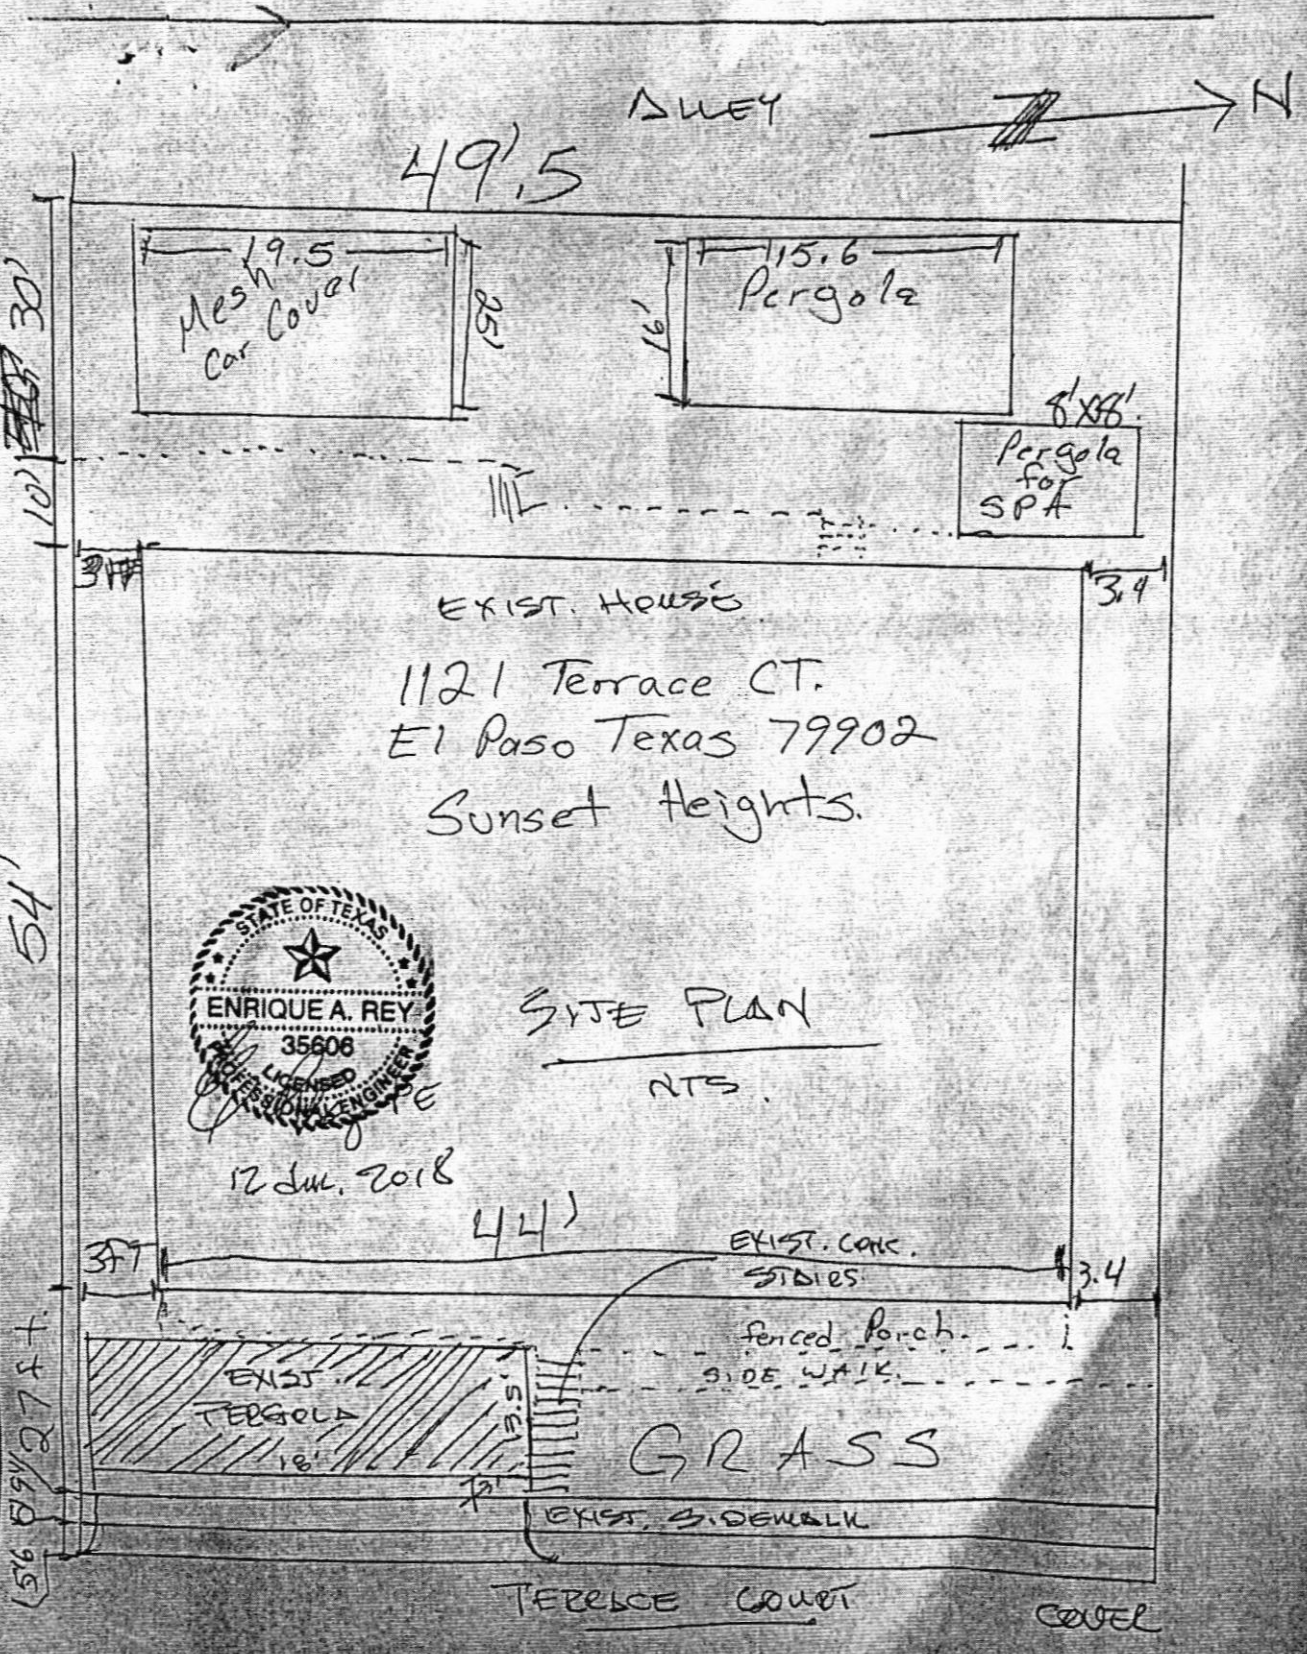 ALLEY
N
49'.5
30'
19.5
Mesh
Car Cover
25'
15.6
Pergola
16'
8'X8'
Pergola
for
SPA
10'
3.4
EXIST. HOUSE
1121 Terrace CT.
El Paso Texas 79902
Sunset Heights.
54'
STATE OF TEXAS
ENRIQUE A. REY
35606
LICENSED
PROFESSIONAL ENGINEER
PE
SITE PLAN
NTS.
2018
44'
3FT
EXIST. CONC.
STAIRS
3.4
fenced Porch.
SIDE WALK
27 ft.
EXIST.
PERGOLA
18'
13.5
GRASS
EXIST. SIDEWALK
TERRACE COURT
COVER